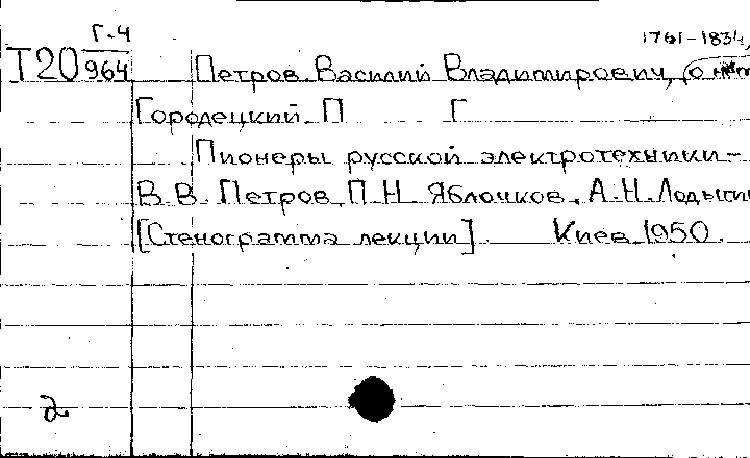 Г-4
1761-1834,
Т20 964 Петров Василий Владимирович, (о
Городецкий П Г
Пионеры русской электротехники-
В.В. Петров, П.Н. Яблочков, А.Н. Лодыгин
[Стенограмма лекции]. Киев 1950.
2